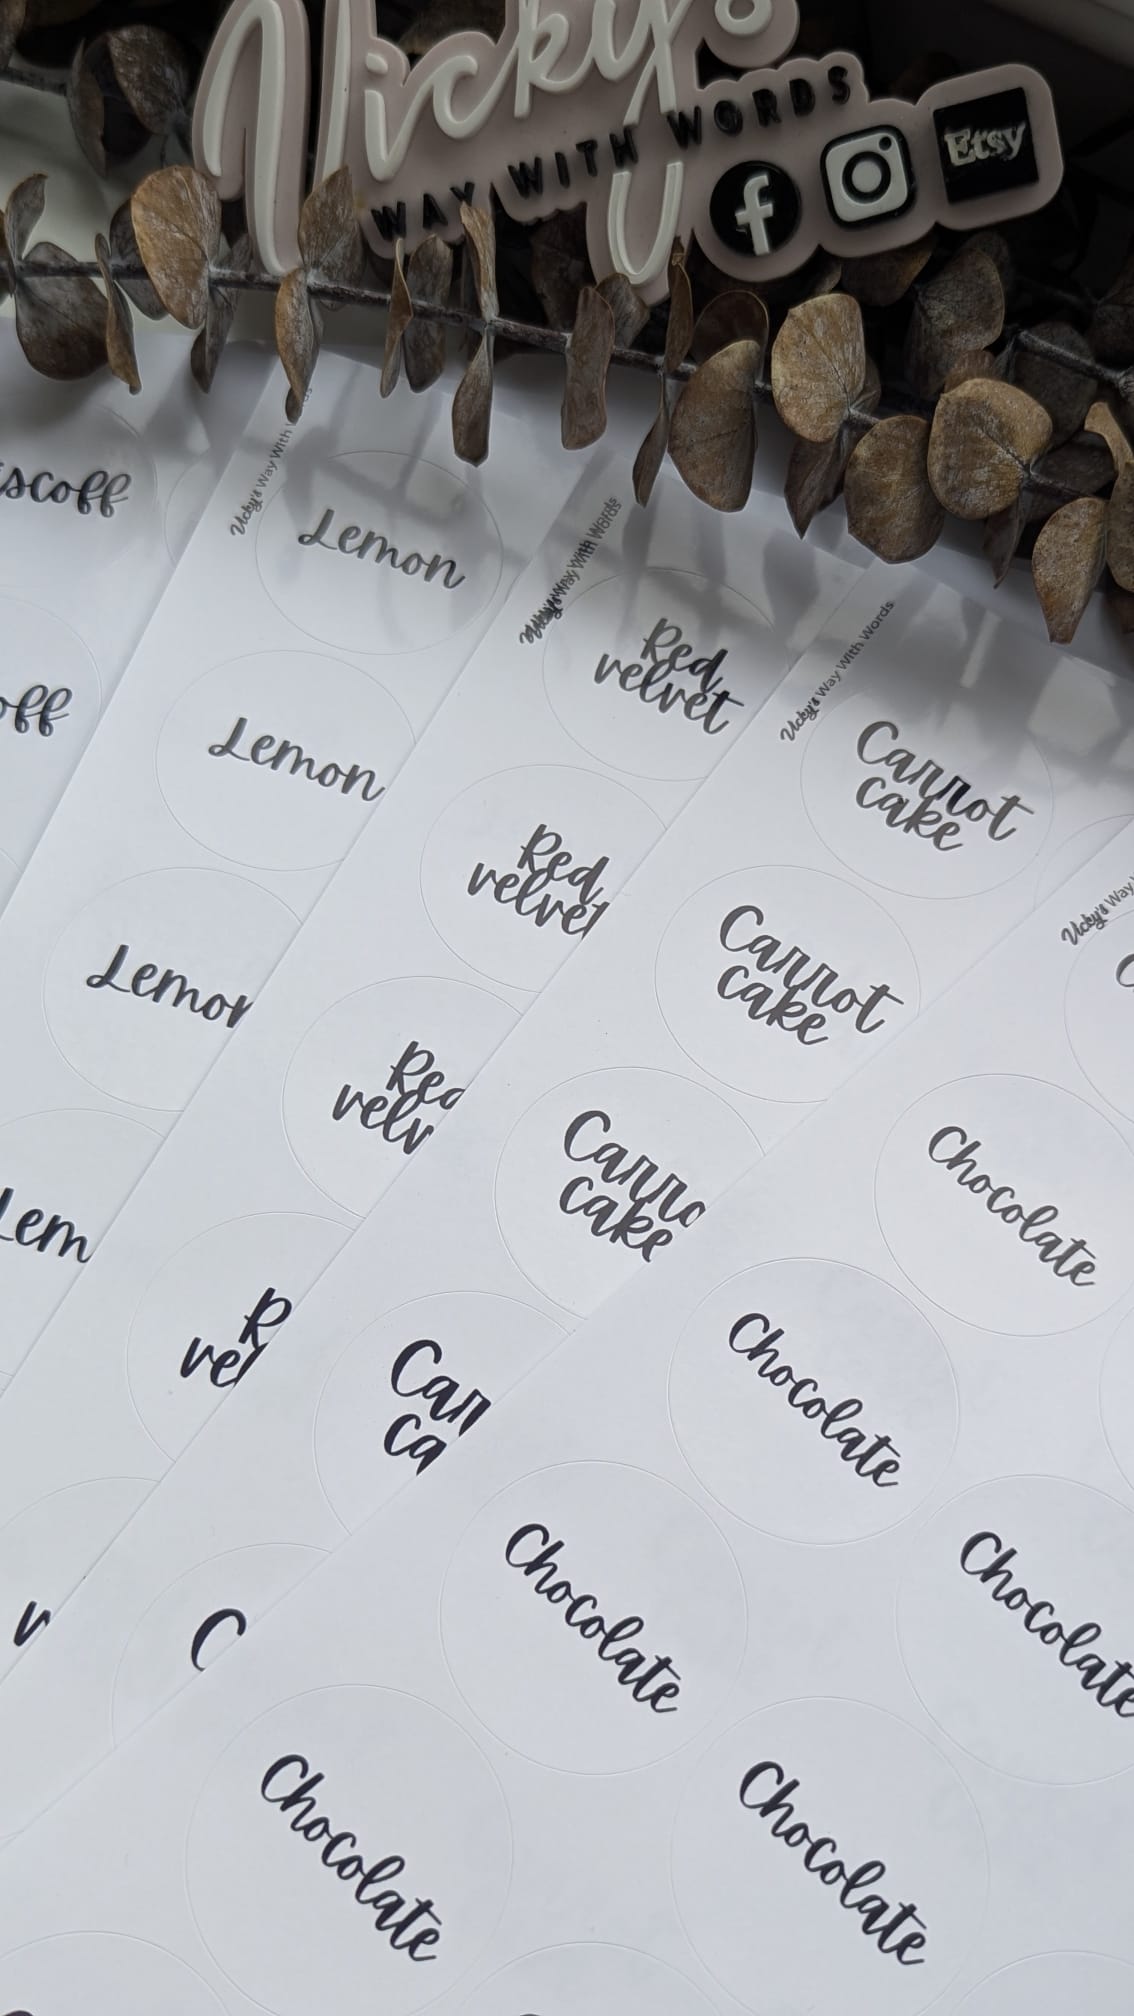 Vicky's
WAY WITH WORDS
f
Etsy
scoff
off
Vicky's Way With Words
Lemon
Lemon
Lemon
Lem
Vicky's Way With Words
Red
velvet
Red
velvet
Red
velv
R
vel
v
Vicky's Way With Words
Carrot
cake
Carrot
cake
Carro
cake
Car
ca
C
Vicky's Way
C
Chocolate
Chocolate
Chocolate
Chocolate
Chocolate
Chocolate